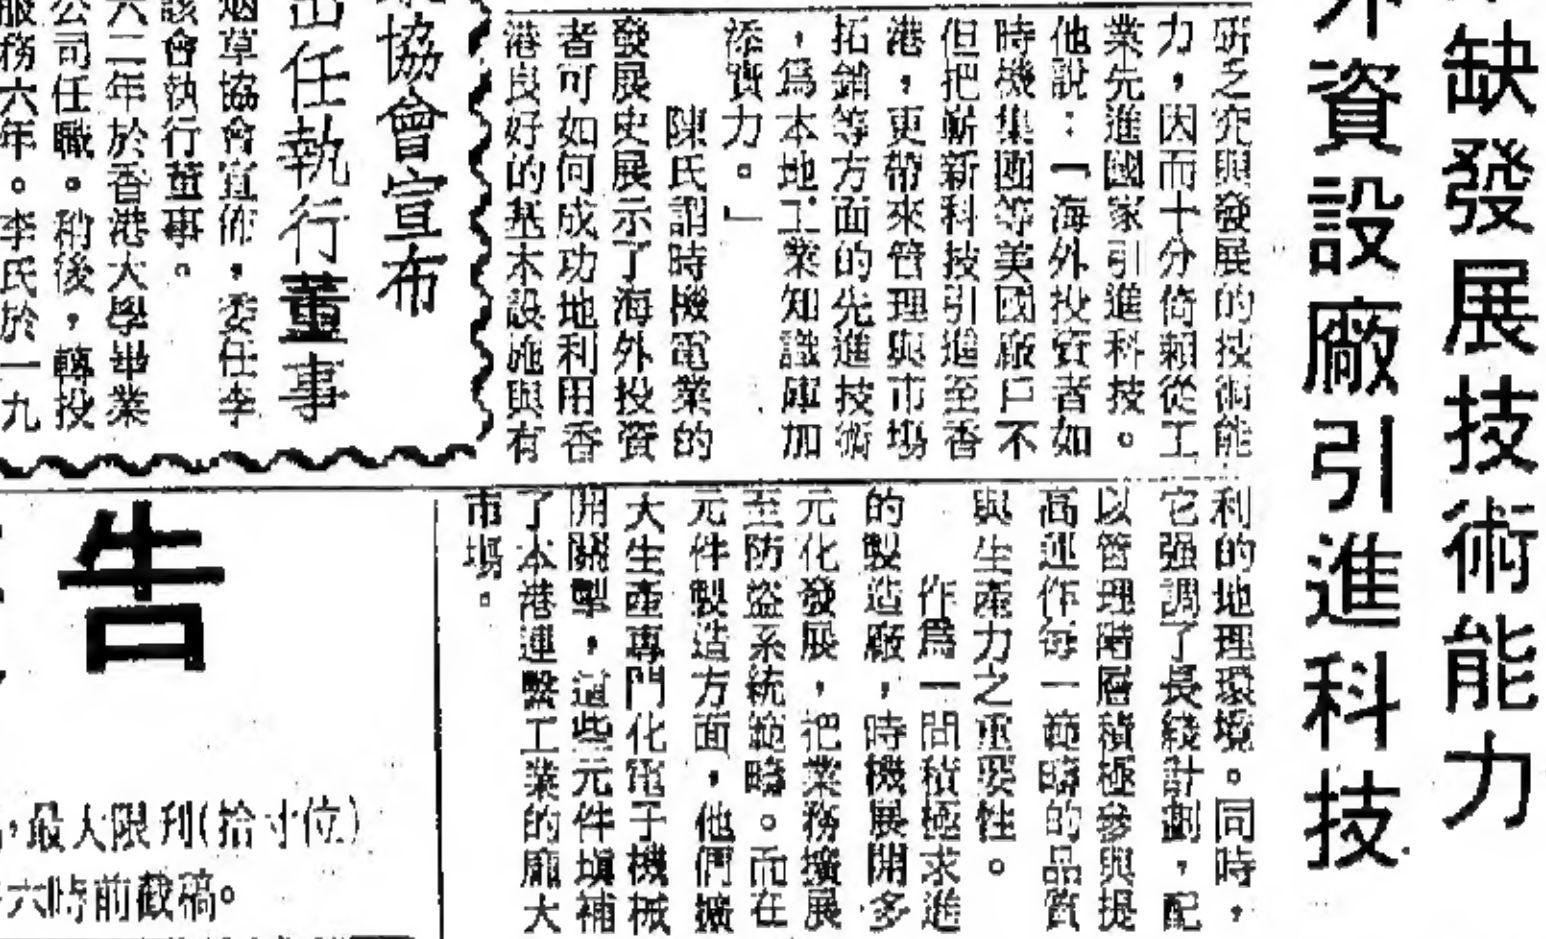 缺發展技術能力
外資設廠引進科技
研之究與發展的技術能
力，因而十分倚賴從工
業先進國家引進科技。
他說：「海外投資者如
時機集團等美國廠戶不
但把嶄新科技引進至香
港，更帶來管理與市場
拓銷等方面的先進技術
，爲本地工業知識庫加
添實力。」
陳氏謂時機電業的
發展史展示了海外投資
者可如何成功地利用香
港良好的基本設施與有
利的地理環境。同時，
它强調了長綫計劃，配
以管理階層積極參與提
高運作每一範疇的品質
與生產力之重要性。
作爲一間積極求進
的製造廠，時機展開多
元化發展，把業務擴展
至防盜系統範疇。而在
元件製造方面，他們擴
大生產專門化電子機械
開關掣，這些元件塡補
了本港連繫工業的龐大
市場。
協會宣布
出任執行董事
烟草協會宣佈，委任李
該會執行董事。
六二年於香港大學畢業
公司任職。稍後，轉投
服務六年。李氏於一九
告
，最大限刋(拾寸位)
六時前截稿。